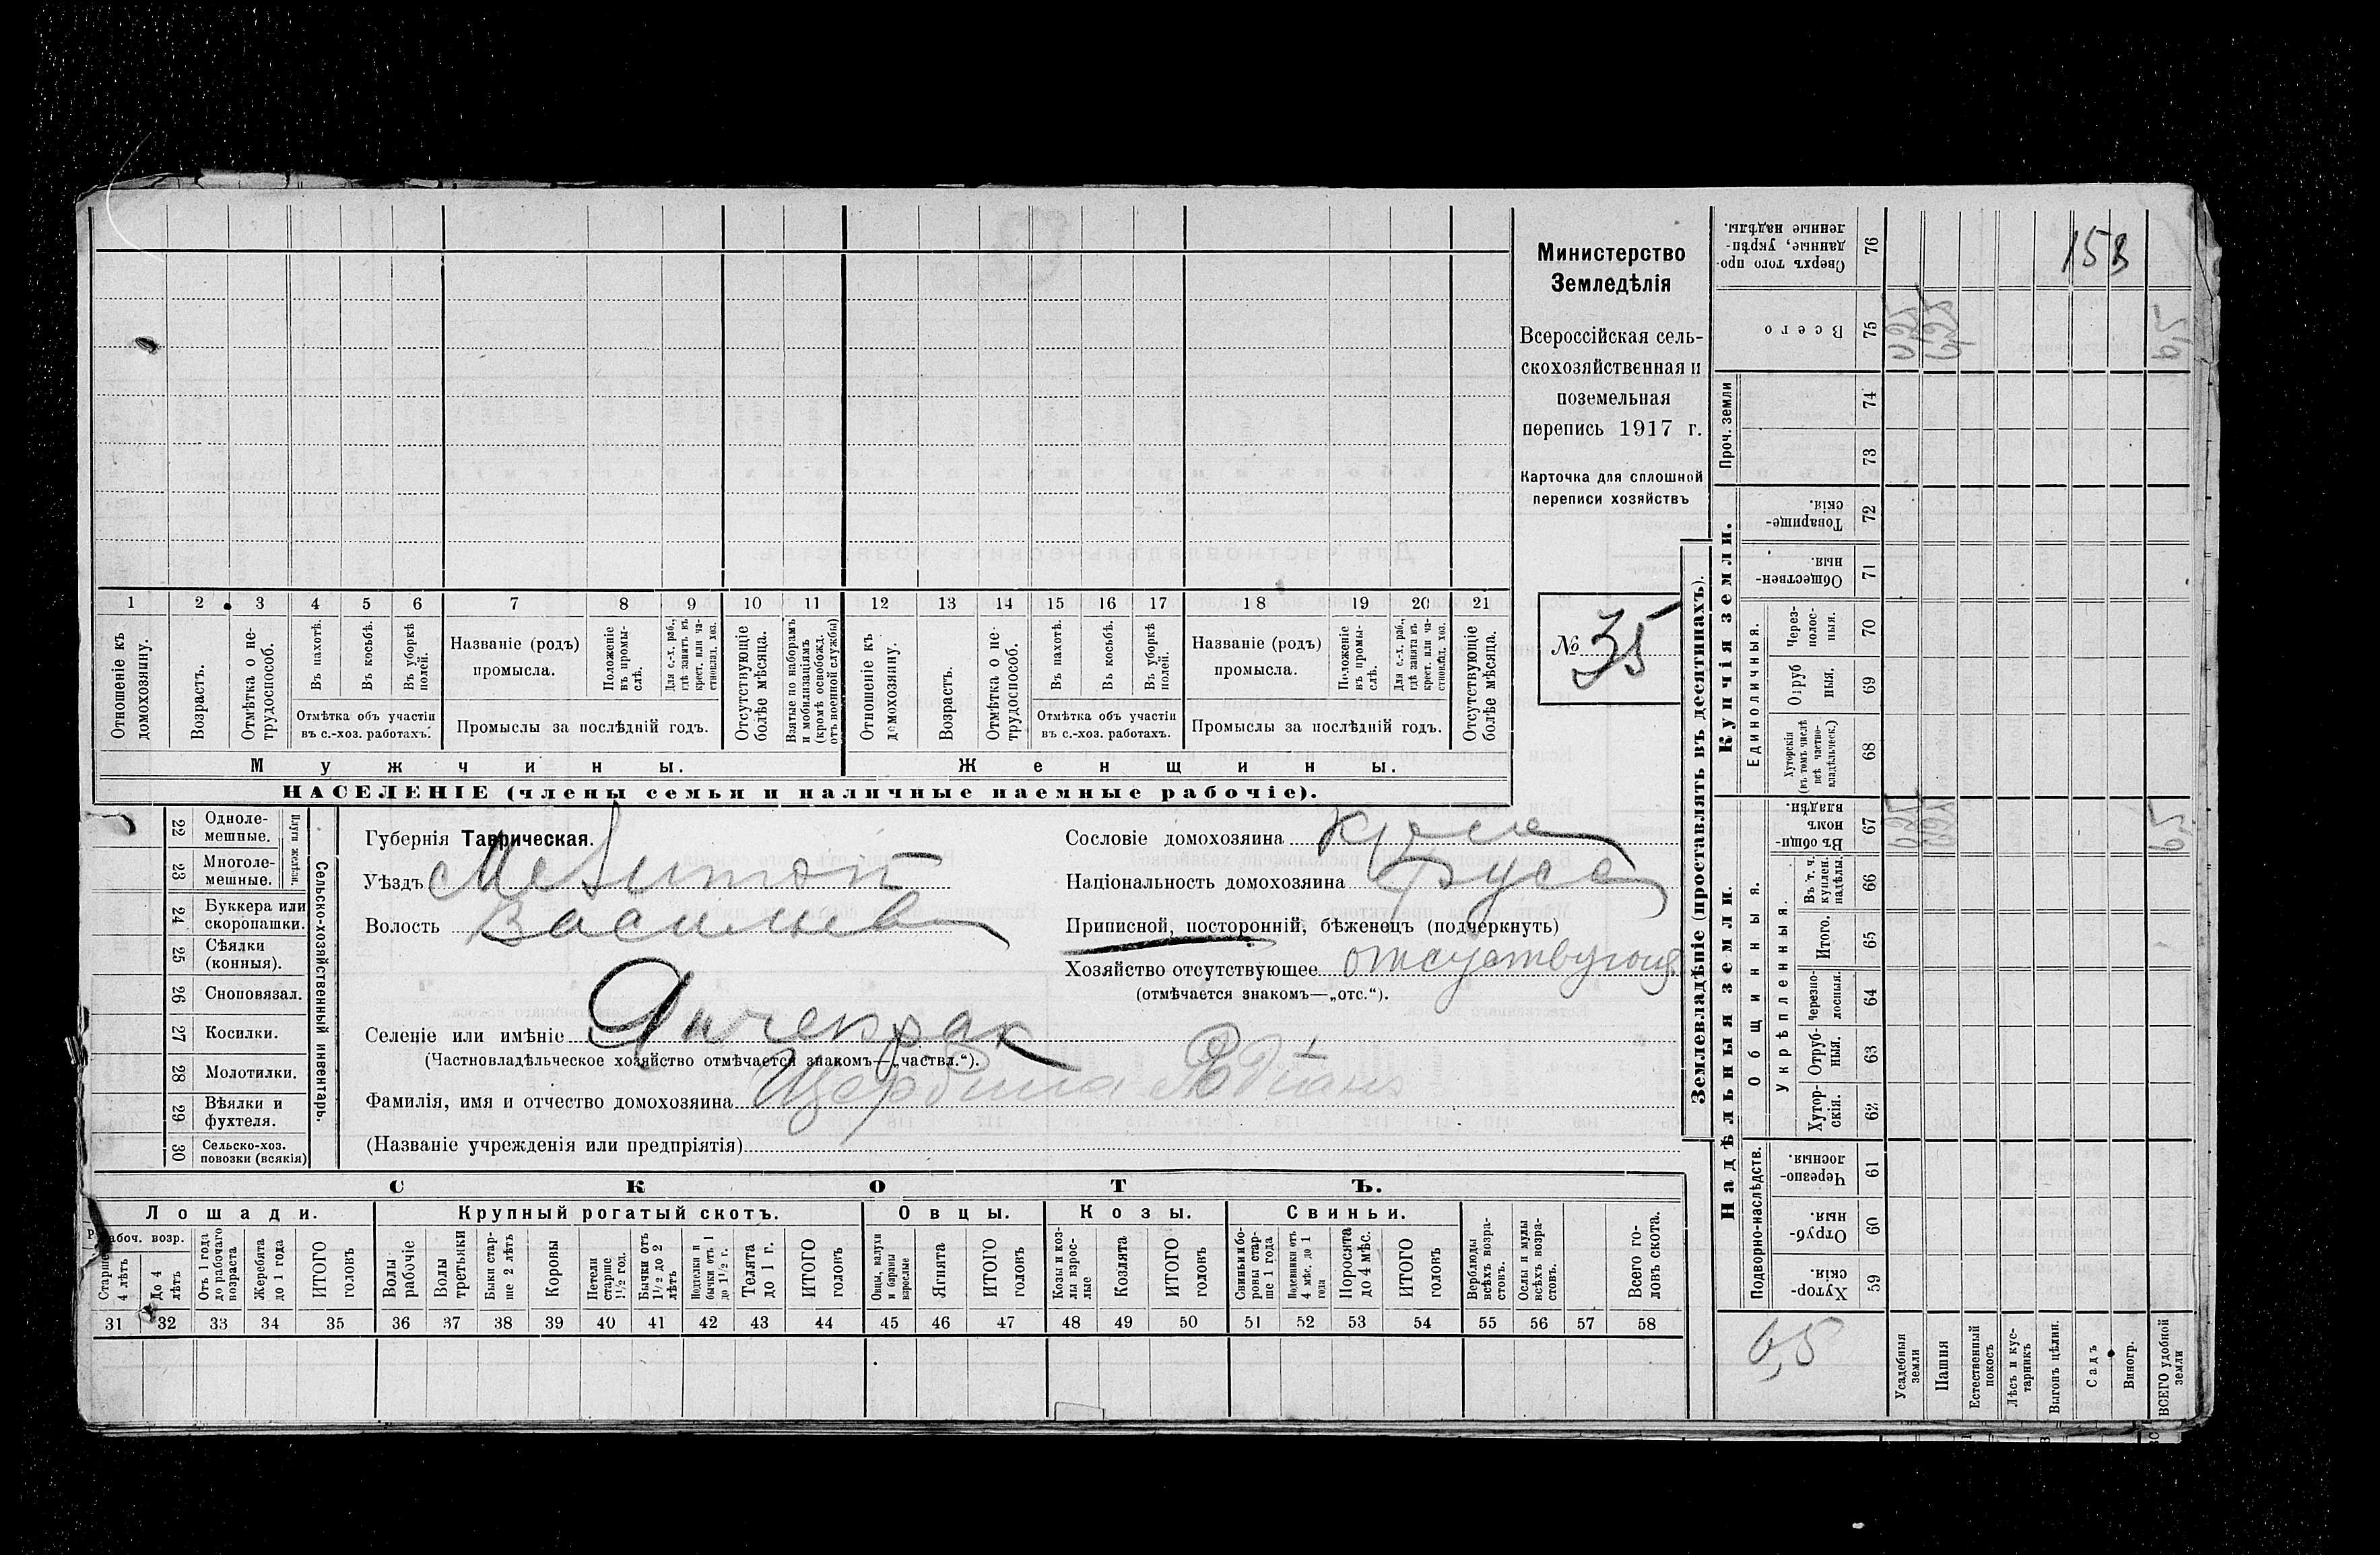 Министерство
Земледѣлія
Всероссійская сель-
скохозяйственная и
поземельная
перепись 1917 г.
Карточка для сплошной
переписи хозяйствъ
№ 35
1 2 3 4 5 6 7 8 9 10 11 12 13 14 15 16 17 18 19 20 21
Отношеніе къ домохозяину.
Возрастъ.
Отмѣтка о не-трудоспособ.
Въ пахотѣ.
Въ косьбѣ.
Въ уборкѣ полей.
Отмѣтка объ участіи
въ с.-хоз. работахъ.
Названіе (родъ)
промысла.
Положеніе въ промы-слѣ.
Для с.-х. раб., гдѣ занятъ въ крест. или ча-стновлад. хоз.
Промыслы за послѣдній годъ.
Отсутствующіе болѣе мѣсяца.
Взятые по наборамъ и мобилизаціямъ (кромѣ освобожд. отъ военной службы)
Отношеніе къ домохозяину.
Возрастъ.
Отмѣтка о не-трудоспособ.
Въ пахотѣ.
Въ косьбѣ.
Въ уборкѣ полей.
Отмѣтка объ участіи
въ с.-хоз. работахъ.
Названіе (родъ)
промысла.
Положеніе въ промы-слѣ.
Для с.-х. раб., гдѣ занятъ въ крест. или ча-стновлад. хоз.
Промыслы за послѣдній годъ.
Отсутствующіе болѣе мѣсяца.
Мужчины. Женщины.
НАСЕЛЕНІЕ (члены семьи и наличные наемные рабочіе).
22 Одноле-мешные.
23 Многоле-мешные.
Плуги желѣзн.
24 Буккера или скоропашки.
25 Сѣялки (конныя).
26 Сноповязал.
27 Косилки.
28 Молотилки.
29 Вѣялки и фухтеля.
30 Сельско-хоз. повозки (всякія)
Сельско-хозяйственный инвентарь.
Губернія Таврическая.
Уѣздъ
Волость Васильев
Селеніе или имѣніе Янчекрак
(Частновладѣльческое хозяйство отмѣчается знакомъ—„частвл.“).
Фамилія, имя и отчество домохозяина Щербина Родіонъ
(Названіе учрежденія или предпріятія)
Сословіе домохозяина
Національность домохозяина русс
Приписной, посторонній, бѣженецъ (подчеркнуть)
Хозяйство отсутствующее отсутствующ
(отмѣчается знакомъ—„отс.“).
СКОТЪ.
Лошади. Крупный рогатый скотъ. Овцы. Козы. Свиньи.
Рабоч. возр.
Старше 4 лѣтъ
До 4 лѣтъ
Отъ 1 года до рабочаго возраста
Жеребята до 1 года
ИТОГО головъ
Волы рабочіе
Волы третьяки
Быки стар-ше 2 лѣтъ
Коровы
Нетели старше 1½ год.
Бычки отъ 1½ до 2 лѣтъ
Подтелки и бычки отъ 1 до 1½ г.
Телята до 1 г.
ИТОГО головъ
Овцы, валухи и бараны взрослые
Ягнята
ИТОГО головъ
Козы и коз-лы взрос-лые
Козлята
ИТОГО головъ
Свиньи и бо-ровы стар-ше 1 года
Подсвинки отъ 4 мѣс. до 1 года
Поросята до 4 мѣс.
ИТОГО головъ
Верблюды всѣхъ возра-стовъ.
Ослы и мулы всѣхъ возра-стовъ.
Всего го-ловъ скота.
31 32 33 34 35 36 37 38 39 40 41 42 43 44 45 46 47 48 49 50 51 52 53 54 55 56 57 58
Землевладѣніе (проставлять въ десятинахъ).
Сверхъ того про-данные, укрѣп-ленные надѣлы. 76
158
Всего 75
Проч. земли
74
73
Купчія земли.
Товарище-скія. 72
Обществен-ныя. 71
Единоличныя.
Через-полос-ныя. 70
Отруб-ныя. 69
Хуторскія (въ томъ числѣ всѣ частно-владѣльческ.) 68
Надѣльныя земли.
Общинныя.
Въ общи-номъ владѣн. 67
Укрѣпленныя.
Въ т. ч. куплен. надѣлы. 66
Итого. 65
Черезпо-лосныя. 64
Отруб-ныя. 63
Хутор-скія. 62
Подворно-наслѣдств.
Черезпо-лосныя. 61
Отруб-ныя. 60
Хутор-скія. 59
6,5
Усадебныя земли
Пашня
Естественный покосъ
Лѣсъ и кус-тарникъ
Выгонъ цѣлин.
Садъ
Виногр.
ВСЕГО удобной земли